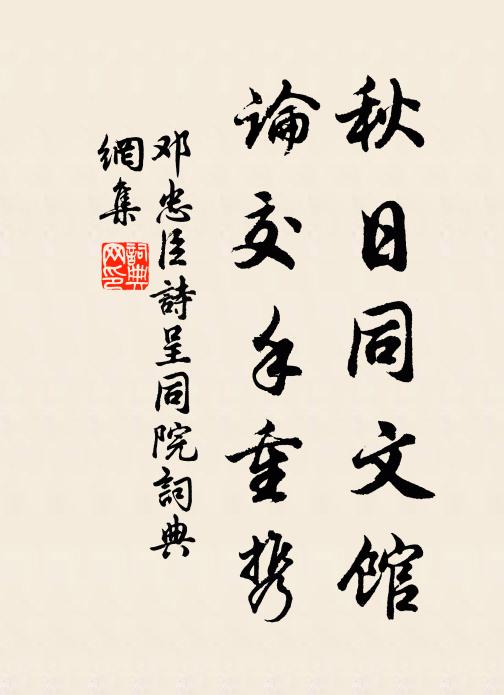 秋日同文館
論交手重携
邓忠臣詩呈同院詞典
網集
詞典网印